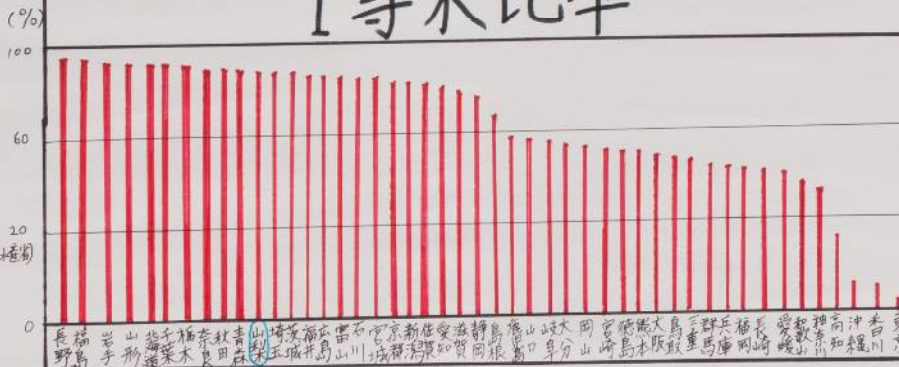 1等米比率
(%)
100
60
20
0
長野
福島
岩手
山形
北海道
千葉
栃木
奈良
秋田
青森
山梨
埼玉
茨城
福井
広島
富山
石川
宮城
京都
新潟
佐賀
愛知
滋賀
静岡
島根
山口
岐阜
大分
岡山
宮崎
徳島
熊本
大阪
鳥取
三重
群馬
兵庫
福岡
長崎
愛媛
和歌山
神奈川
高知
沖縄
香川
東京